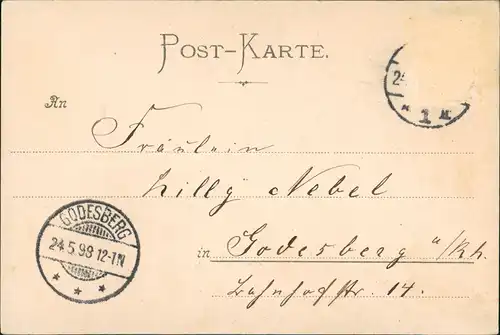 POST-KARTE.
24
* 1 *
An
Fräulein
Lilly Nebel
GODESBERG
24.5.98 12-1N
* * *
in Godesberg a/Rh.
Bahnhofstr 14.